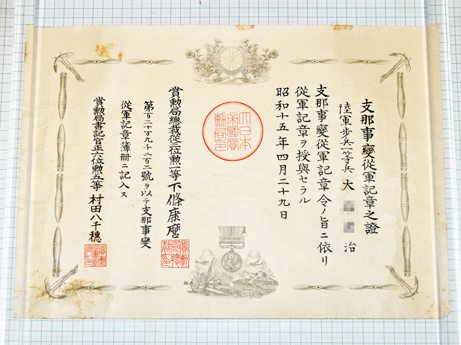 支那事變從軍記章之證
陸軍歩兵一等兵 大 治
支那事變從軍記章令ノ旨ニ依リ
從軍記章ヲ授與セラル
昭和十五年四月二十九日
大日本帝國賞勳局印
賞勲局總裁從三位勲一等下條康麿
第百二十九千一百三號ヲ以テ支那事變
從軍記章簿冊ニ記入ス
賞勲局書記官正六位勲五等村田八千穂